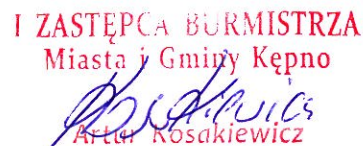 I ZASTĘPCA BURMISTRZA
Miasta i Gminy Kępno
Artur Kosakiewicz